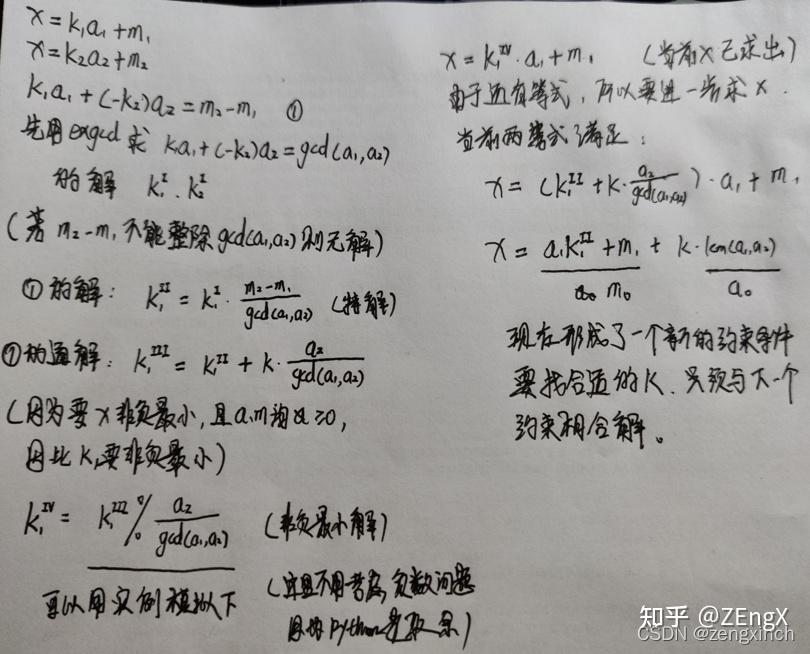 x = k₁a₁ + m₁
x = k₂a₂ + m₂
k₁a₁ + (-k₂)a₂ = m₂ - m₁ ①
先用 exgcd 求 k₁a₁ + (-k₂)a₂ = gcd(a₁, a₂)
的解 k₁ᴵ. k₂ᴵ
(若 m₂ - m₁ 不能整除 gcd(a₁, a₂) 则无解)
①的解: k₁ᴵᴵ = k₁ᴵ · (m₂ - m₁)/gcd(a₁, a₂) (特解)
①的通解: k₁ᴵᴵᴵ = k₁ᴵᴵ + k · a₂/gcd(a₁, a₂)
(因为要 x 非负最小, 且 a.m 均 ≥ 0,
因此 k₁要非负最小)
k₁ᴵⱽ = k₁ᴵᴵᴵ % a₂/gcd(a₁, a₂) (非负最小解)
可以用实例模拟下
(这里不用考虑负数问题
因为 Python 是取余)
x = k₁ᴵⱽ · a₁ + m₁ (当前 x 已求出)
由于还有等式, 所以要进一步求 x.
当前两等式满足:
x = (k₁ᴵᴵ + k · a₂/gcd(a₁, a₂)) · a₁ + m₁
x = a₁k₁ᴵᴵ + m₁ + k · lcm(a₁, a₂)
m₀ a₀
现在形成了一个新的约束条件
要找合适的 k. 只须与下一个
约束相合解。
知乎 @ZEngX
CSDN @zengxinch